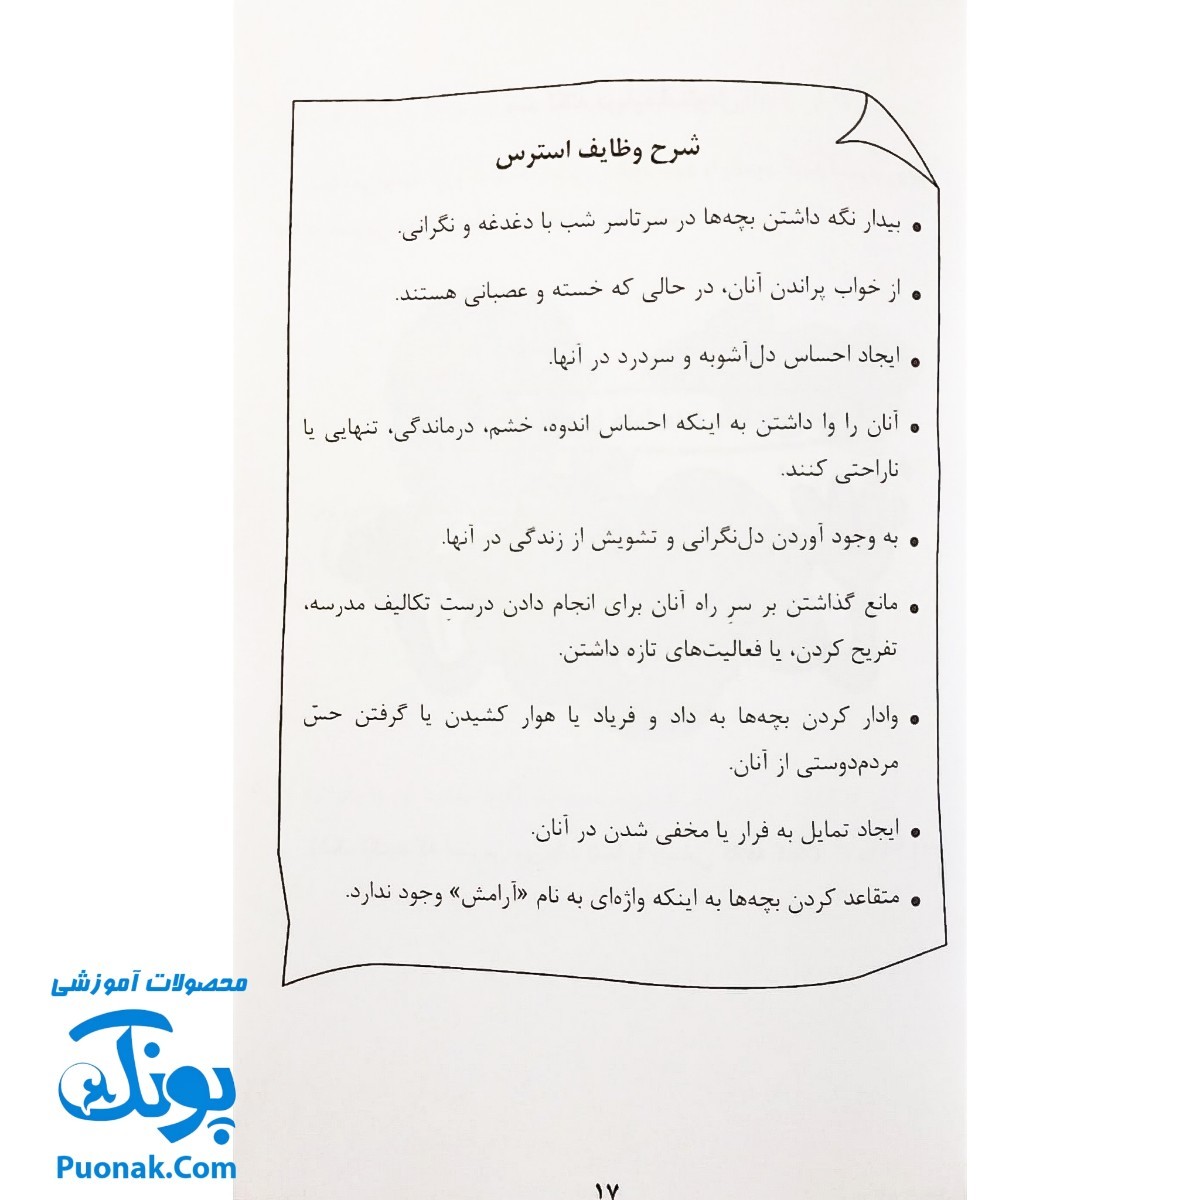 شرح وظایف استرس
• بیدار نگه داشتن بچه‌ها در سرتاسر شب با دغدغه و نگرانی.
• از خواب پراندن آنان، در حالی که خسته و عصبانی هستند.
• ایجاد احساس دل‌آشوبه و سردرد در آنها.
• آنان را وا داشتن به اینکه احساس اندوه، خشم، درماندگی، تنهایی یا
ناراحتی کنند.
• به وجود آوردن دل‌نگرانی و تشویش از زندگی در آنها.
• مانع گذاشتن بر سرِ راه آنان برای انجام دادن درستِ تکالیف مدرسه،
تفریح کردن، یا فعالیت‌های تازه داشتن.
• وادار کردن بچه‌ها به داد و فریاد یا هوار کشیدن یا گرفتن حسّ
مردم‌دوستی از آنان.
• ایجاد تمایل به فرار یا مخفی شدن در آنان.
• متقاعد کردن بچه‌ها به اینکه واژه‌ای به نام «آرامش» وجود ندارد.
محصولات آموزشی
پونک
Puonak.Com
۱۷